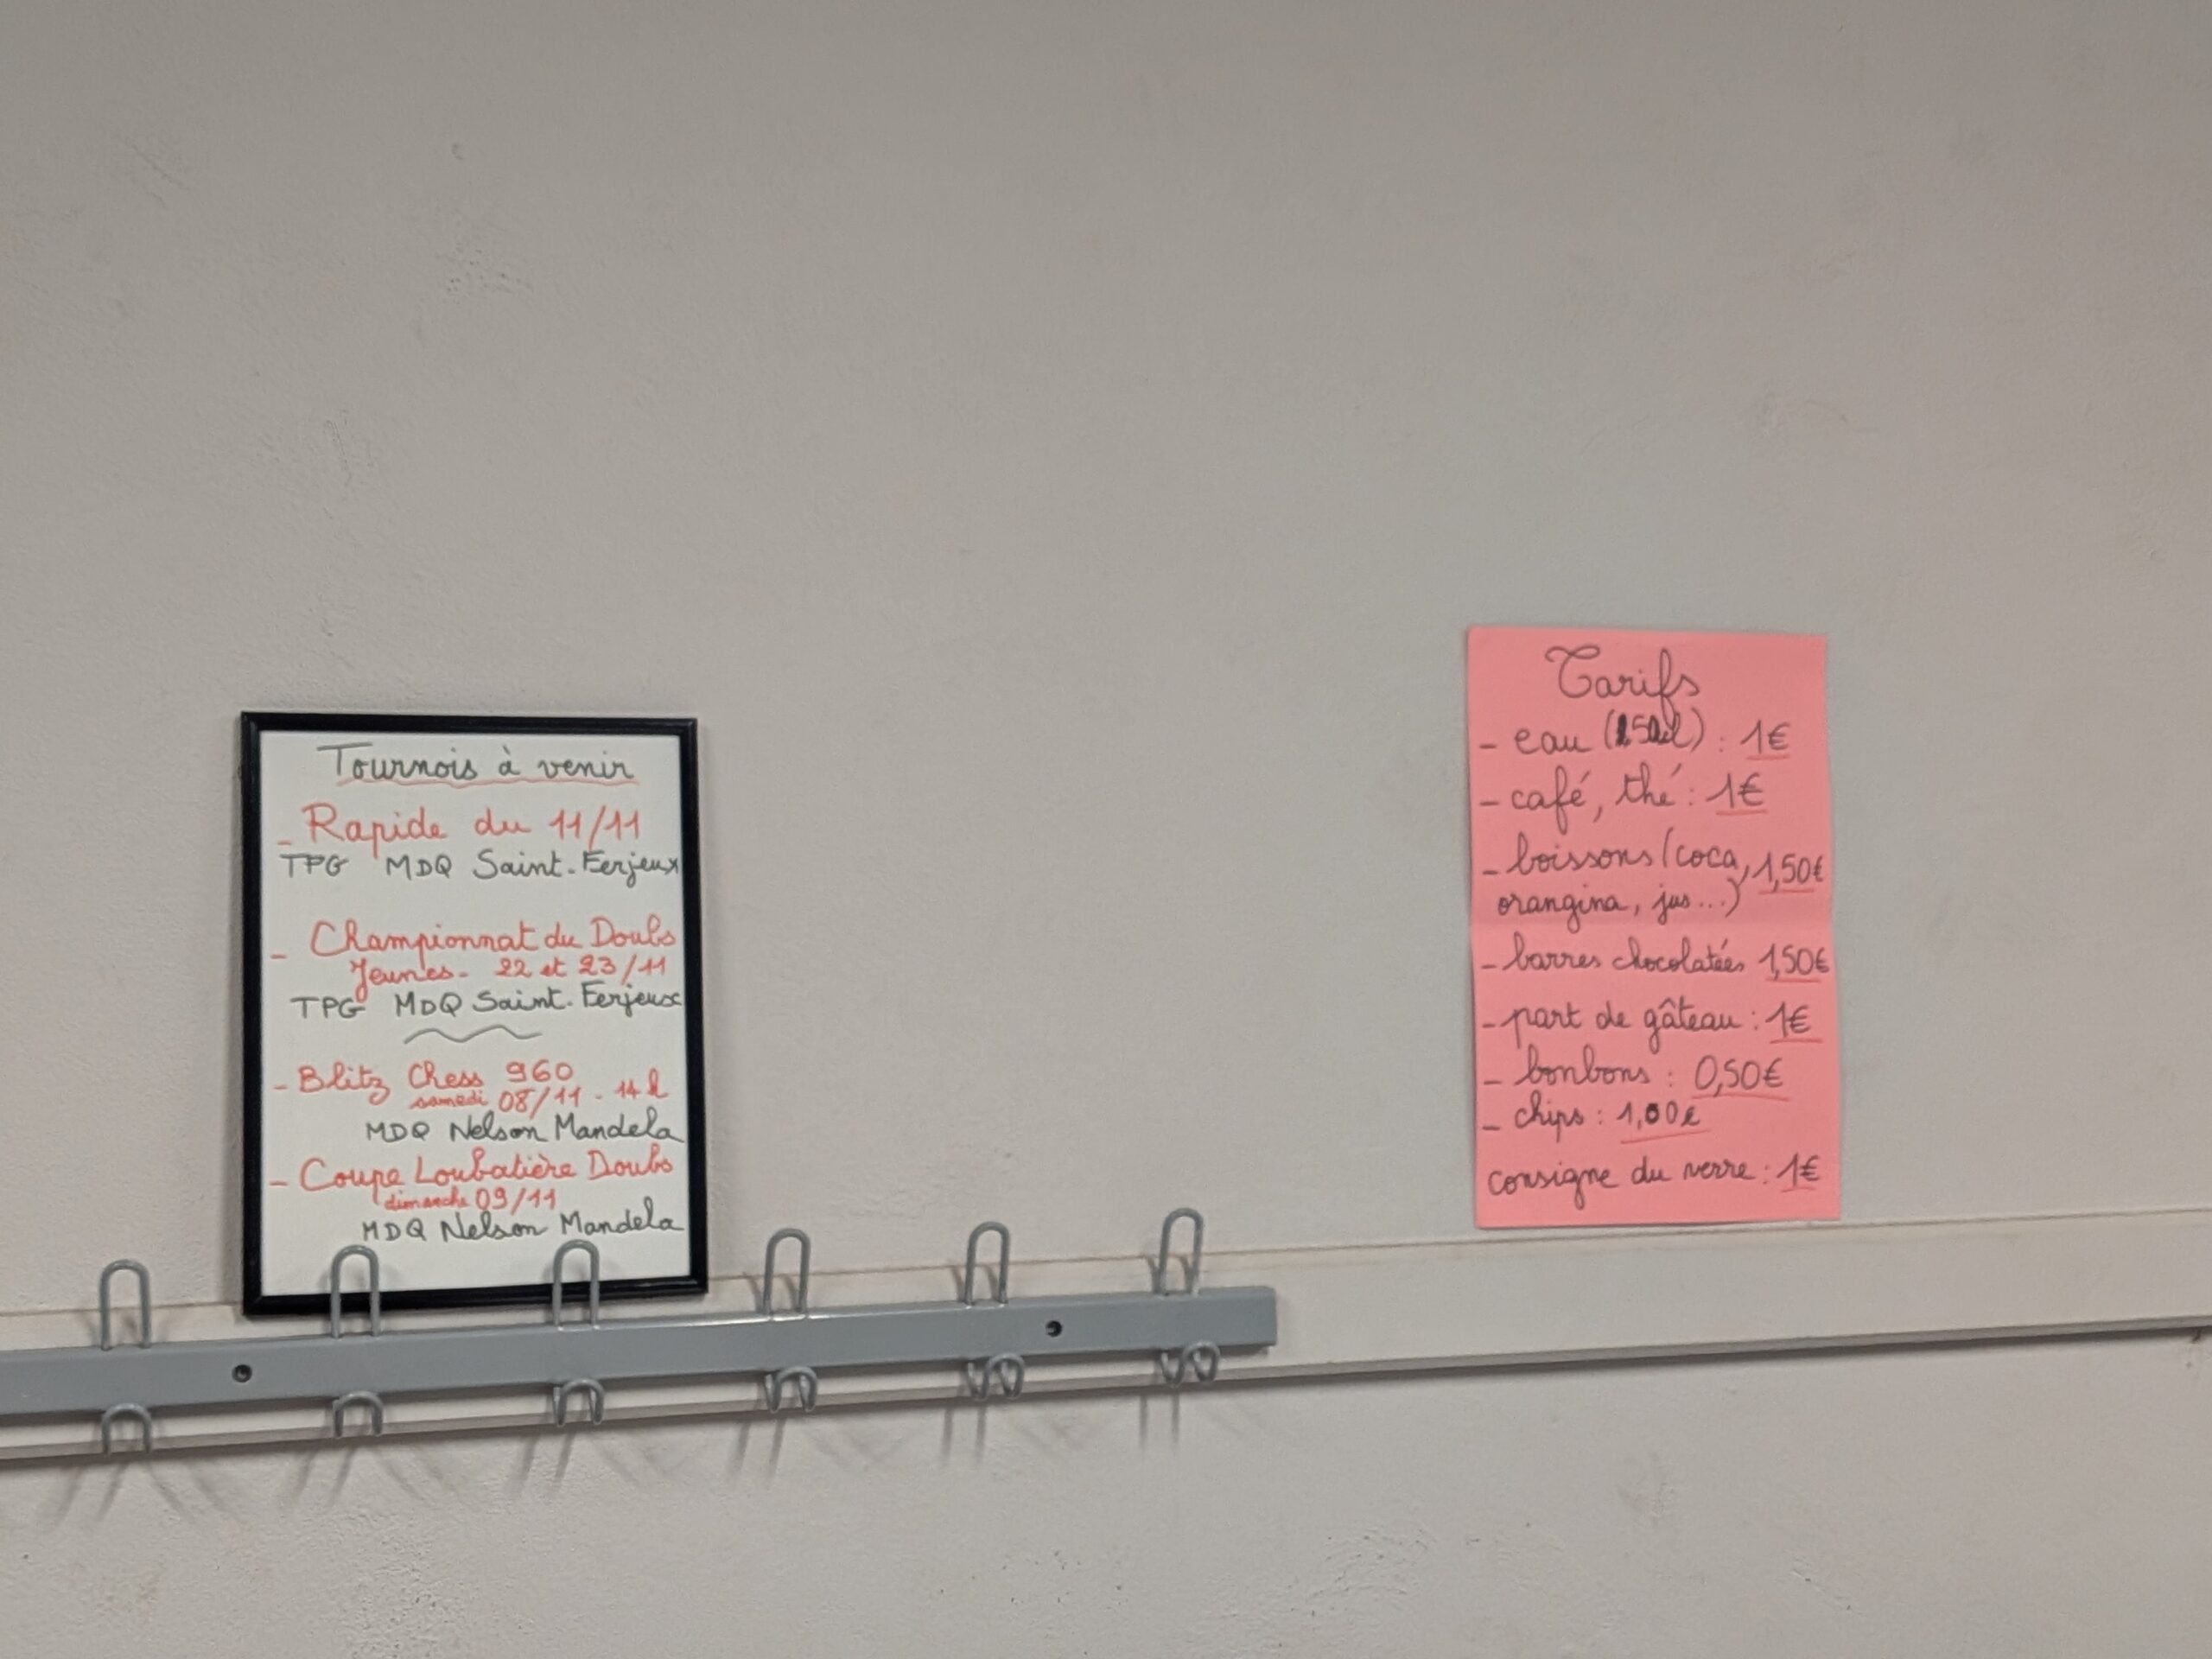 Tournois à venir
- Rapide du 11/11
TPG MDQ Saint-Ferjeux
- Championnat du Doubs
Jeunes - 22 et 23/11
TPG MDQ Saint-Ferjeux
- Blitz Chess 960
samedi 08/11 - 14h
MDQ Nelson Mandela
- Coupe Loubatière Doubs
dimanche 09/11
MDQ Nelson Mandela
Tarifs
- eau : 1€
- café, thé : 1€
- boissons (coca, 1,50€
orangina, jus...)
- barres chocolatées 1,50€
- part de gâteau : 1€
- bonbons : 0,50€
- chips : 1,00€
consigne du verre : 1€